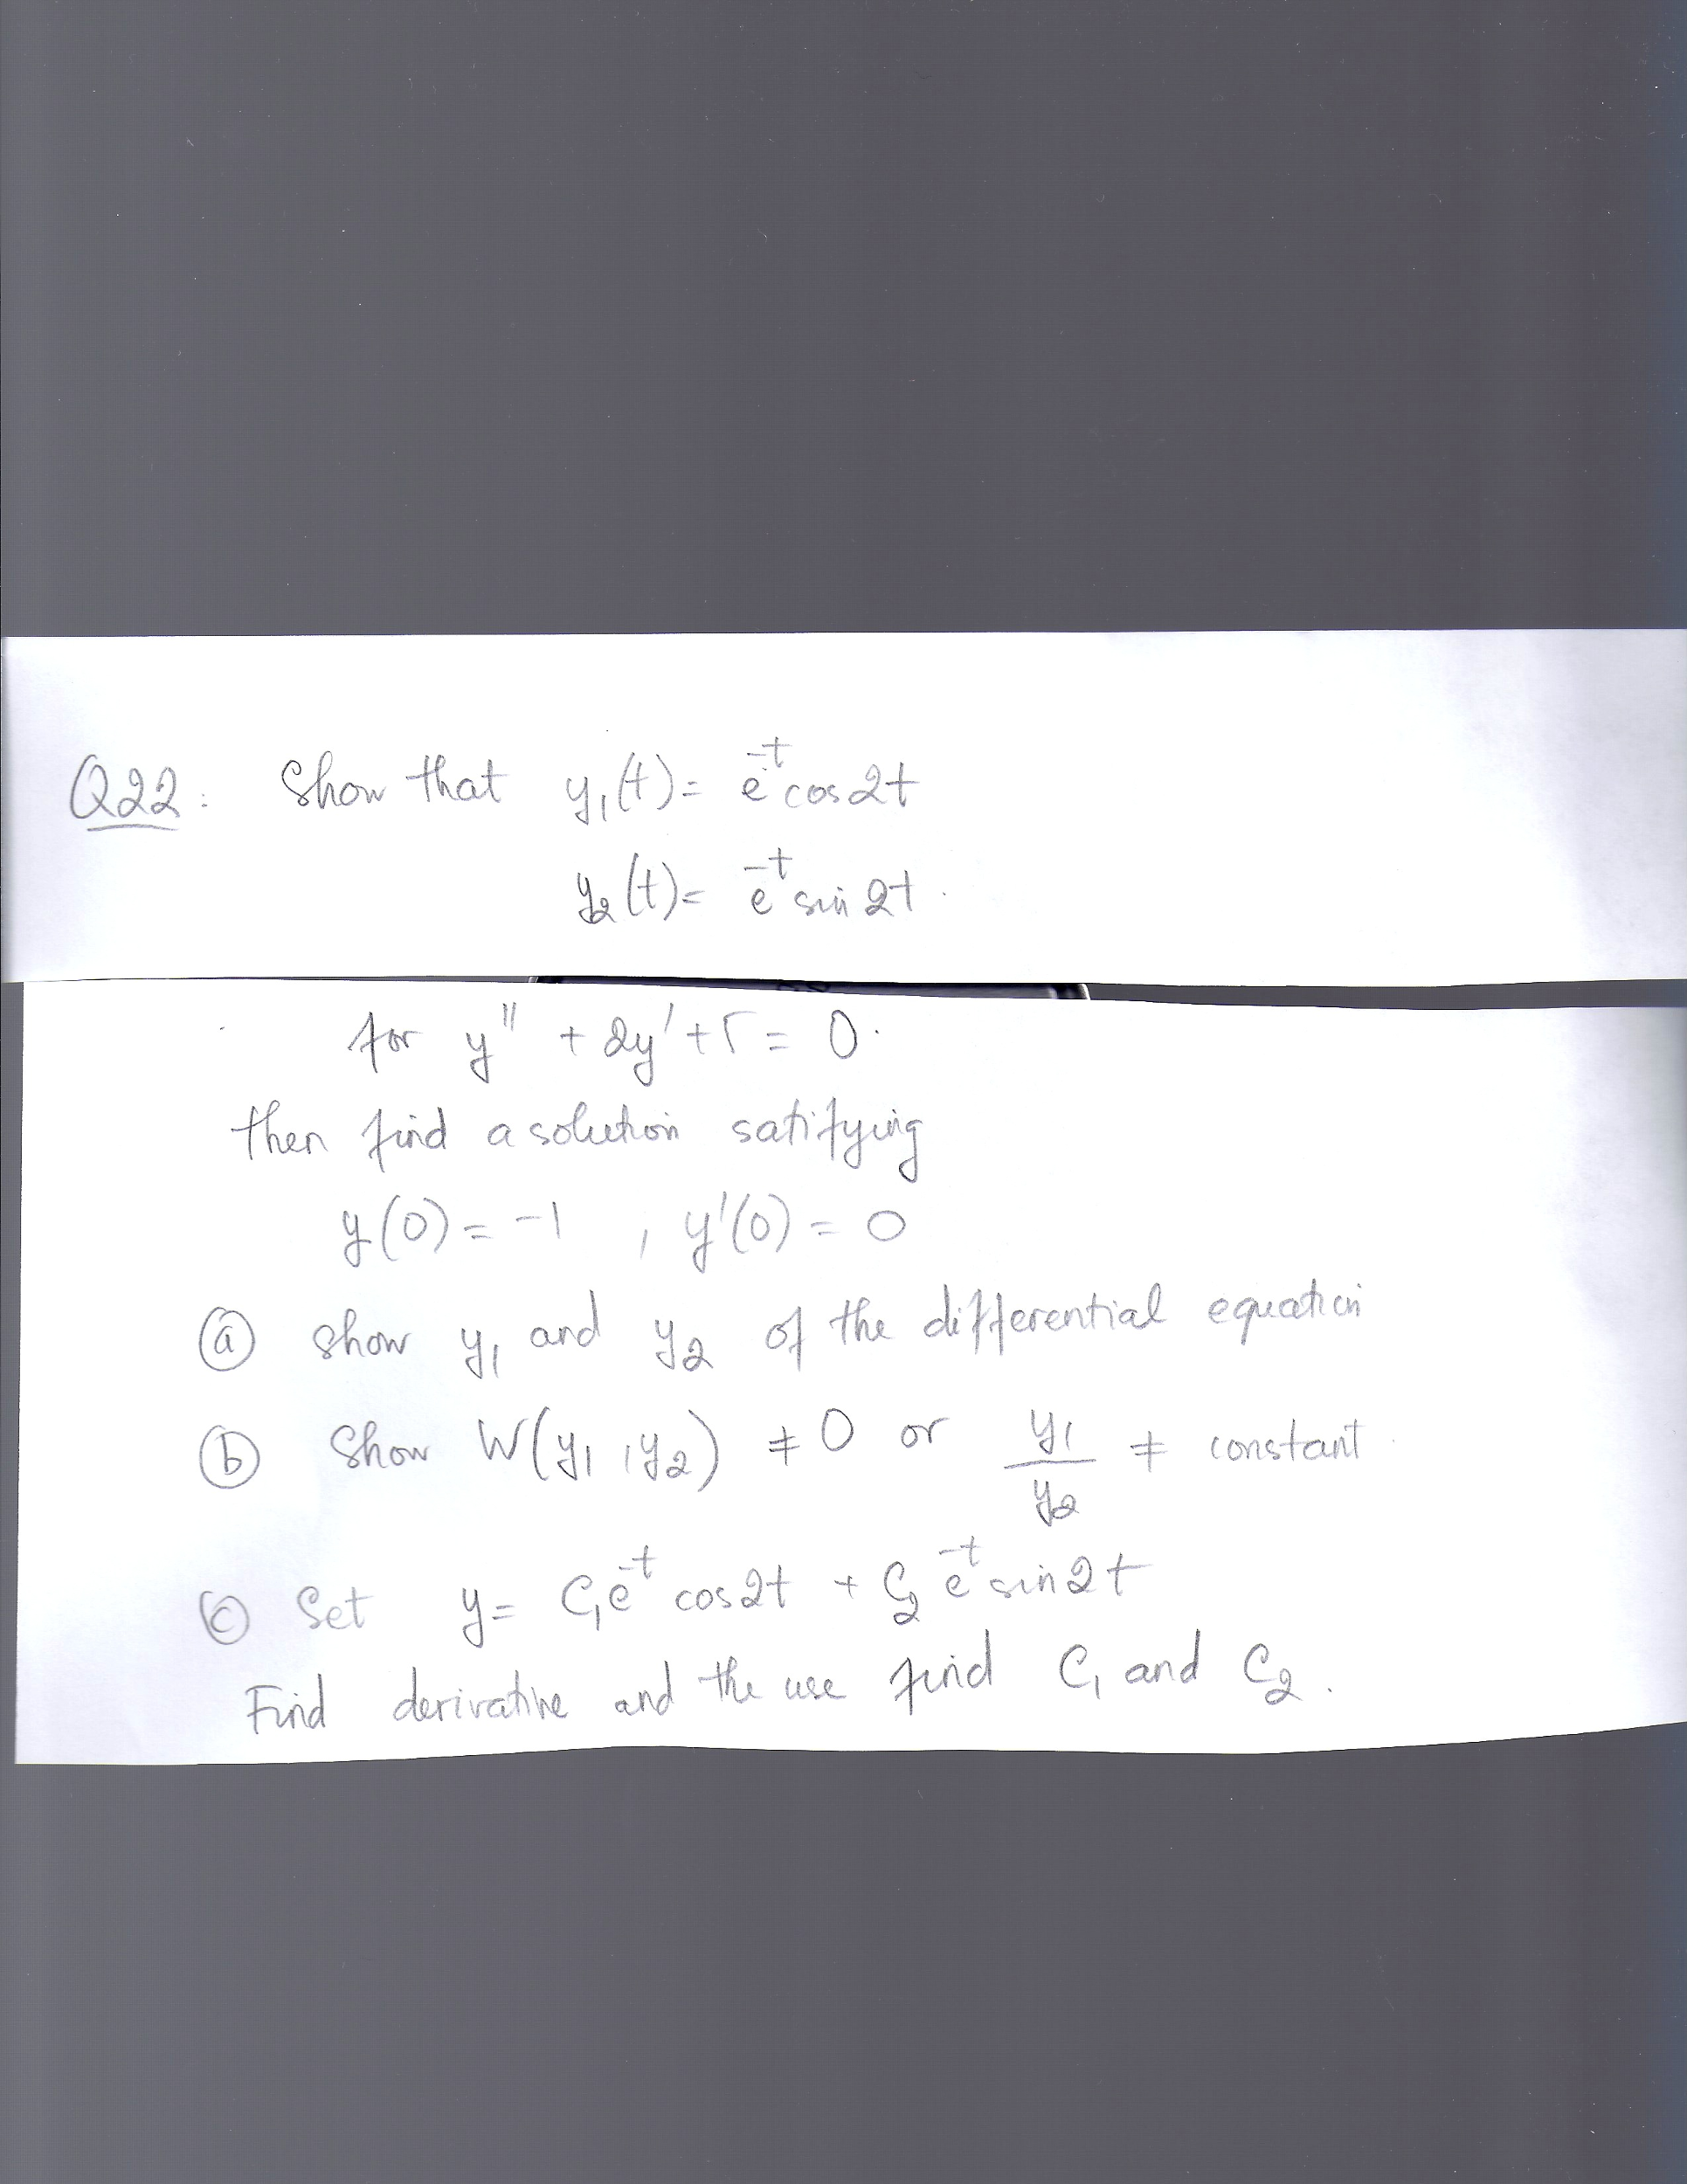 Q22: Show that y₁(t) = e^{-t} cos 2t
y₂(t) = e^{-t} sin 2t.
for y'' + 2y' + 5 = 0.
then find a solution satifying
y(0) = -1 , y'(0) = 0
(a) show y₁ and y₂ of the differential equation
(b) Show W(y₁, y₂) ≠ 0 or y₁/y₂ ≠ constant.
(c) Set y = C₁e^{-t} cos 2t + C₂ e^{-t} sin 2t
Find derivative and the use find C₁ and C₂.